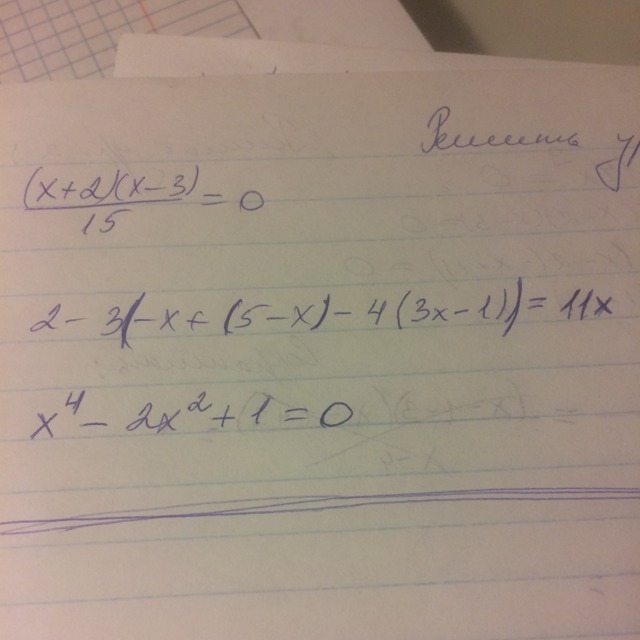 Решить
(x+2)(x-3)/15 = 0
2 - 3(-x + (5-x) - 4(3x-1)) = 11x
x⁴ - 2x² + 1 = 0